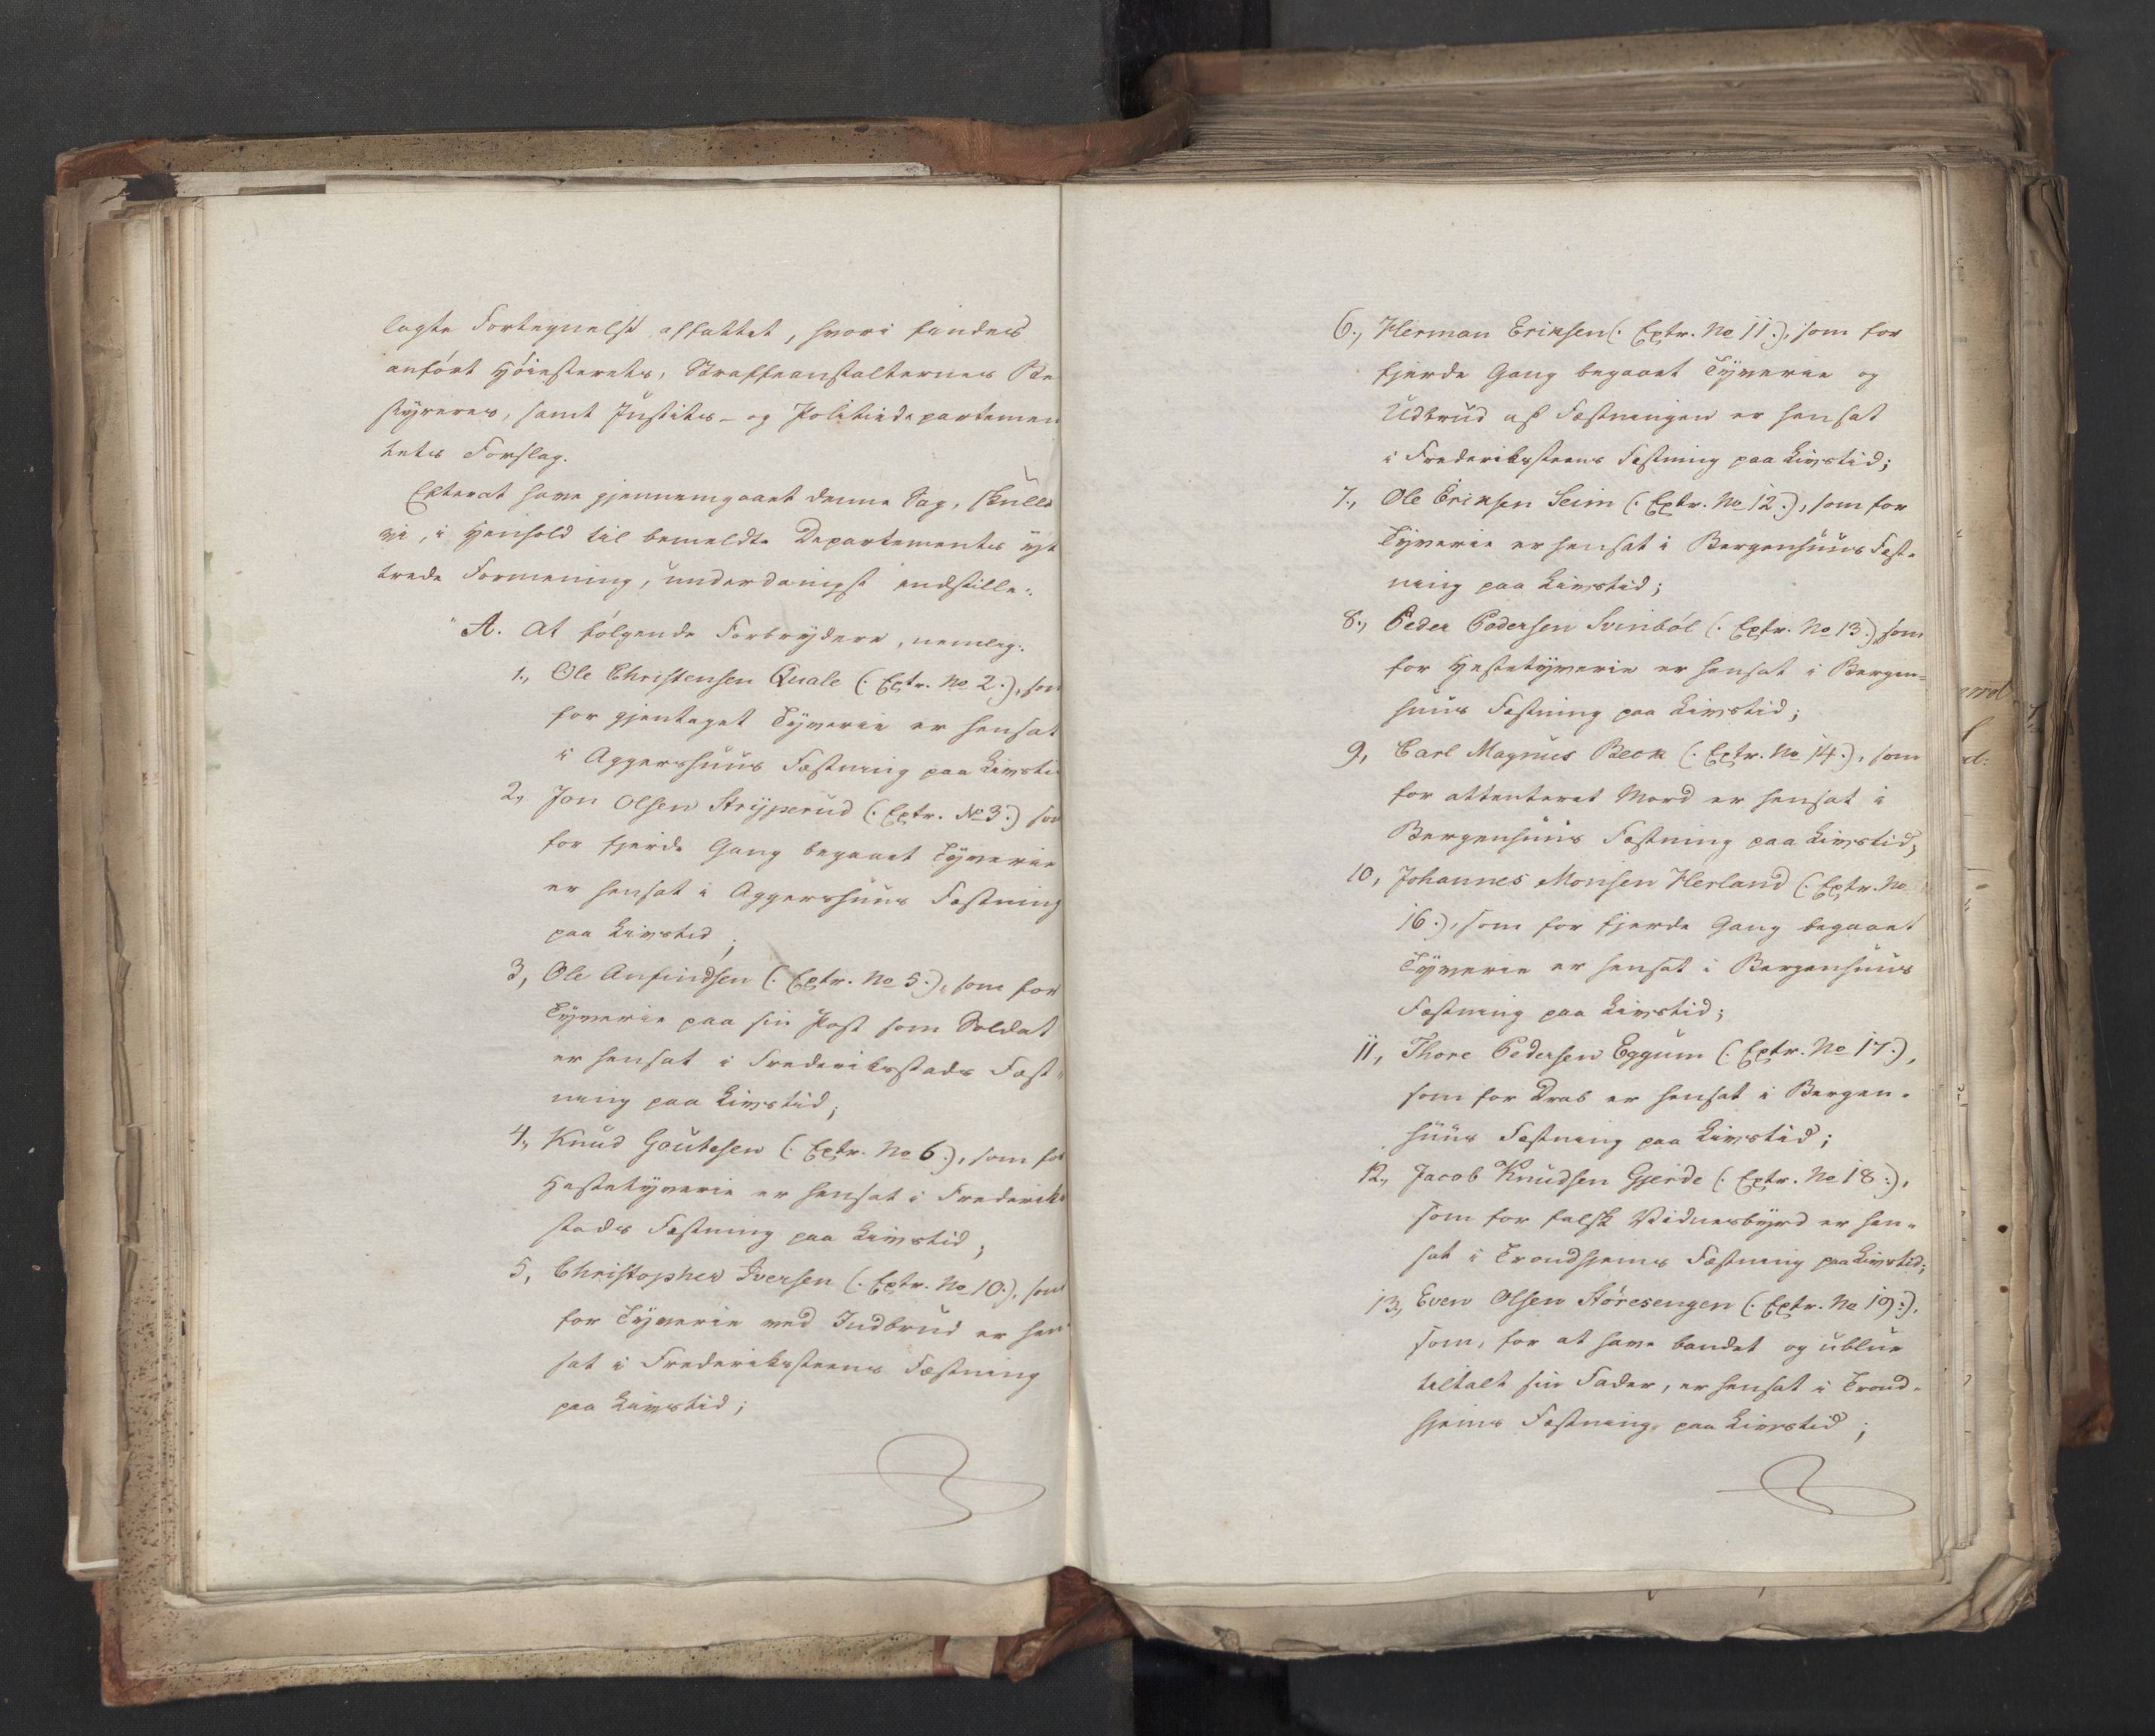 lagte Fortegnelse affattet, hvori findes
anført Høiesterets, Straffeanstalternes Be
styreres, samt Justits- og Politiedepartemen
tets Forslag.
Efterat have gjennemgaaet denne Sag, skulle
vi, i Henhold til bemeldte Departements yt
trede Formening, underdanigst indstille:
"A. At følgende Forbrydere, nemlig:
1., Ole Christensen Quale (: Extr. No 2 :), som
for gjentaget Tyverie er hensat
i Aggershuus Fæstning paa Livsti
2, Jon Olsen Stryperud (: Extr. No 3 :) som
for fjerde Gang begaaet Tyverie
er hensat i Aggershuus Fæstning
paa Livstid;
3, Ole Anfindsen (: Extr. No 5 :), som for
Tyverie paa sin Post som Soldat
er hensat i Frederiksstads Fæst-
ning paa Livstid;
4, Knud Goutesen (: Extr. No 6 :), som for
Hestetyverie er hensat i Frederiks
stads Fæstning paa Livstid;
5, Christopher Iversen (: Extr. No 10 :), som
for Tyverie ved Indbrud er hen
sat i Frederiksteens Fæstning
paa Livstid;
6., Herman Eriksen (: Extr. No 11 :), som for
fjerde Gang begaaet Tyverie og
Udbrud af Fæstningen er hensat
i Frederiksteens Fæstning paa Livstid;
7., Ole Eriksen Seim (: Extr. No 12 :), som for
Tyverie er hensat i Bergenhuus Fæst-
ning paa Livstid;
8., Peder Pedersen Svinbøl (: Extr. No 13 :), som
for Hestetyverie er hensat i Bergen-
huus Fæstning paa Livstid;
9, Carl Magnus Beck (: Extr. No 14 :), som
for attenteret Mord er hensat i
Bergenhuus Fæstning paa Livstid;
10, Johannes Monsen Herland (: Extr. No
16 :), som for fjerde Gang begaaet
Tyverie er hensat i Bergenhuus
Fæstning paa Livstid;
11, Thore Pedersen Eggum (: Extr. No 17 :),
som for Drab er hensat i Bergen-
huus Fæstning paa Livstid;
12., Jacob Knudsen Gjerde (: Extr. No 18 :),
som for falsk Vidnesbyrd er hen-
sat i Trondhjems Fæstning paa Livstid;
13, Even Olsen Støresengen (: Extr. No 19 :),
som, for at have bandet og ublue
tiltalt sin Fader, er hensat i Trond-
hjems Fæstning paa Livstid;